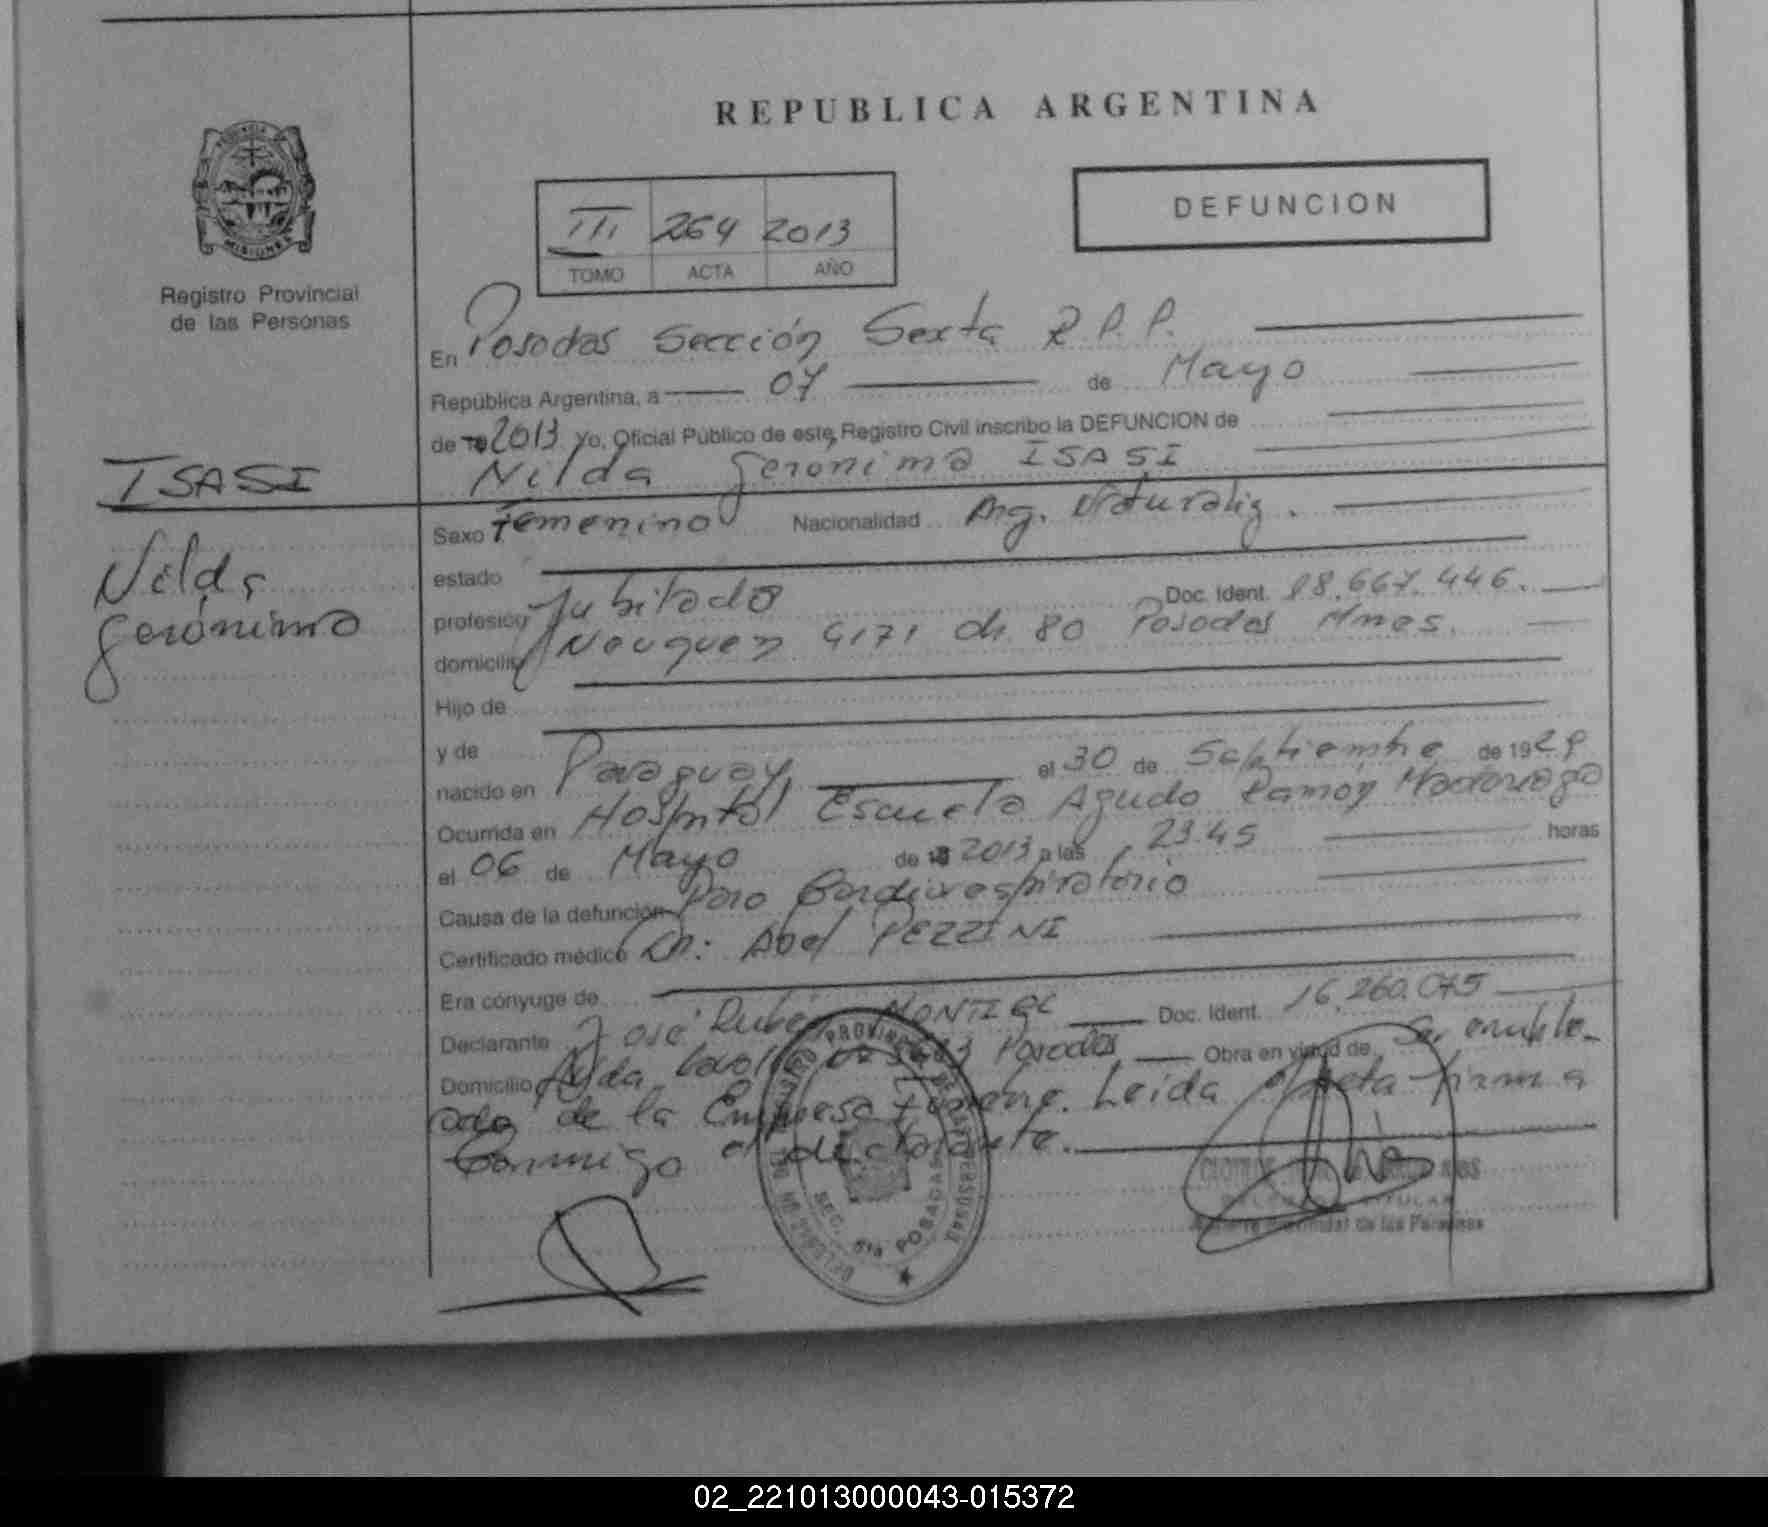 REPUBLICA ARGENTINA
DEFUNCION
III 264 2013
TOMO ACTA AÑO
MISIONES
Registro Provincial
de las Personas
En Posadas Sección Sexta R.P.P.
República Argentina, a 07 de Mayo
de 19 2013 yo, Oficial Público de este Registro Civil inscribo la DEFUNCION de
Nilda Geronima ISASI
ISASI
Nilda
Gerónima
Sexo Femenino Nacionalidad Arg. Naturaliz.
estado
profesión Jubilada Doc. Ident. 18.667.446.
domicilio Neuquen 4171 ch 80 Posadas Mnes.
Hijo de
y de
nacido en Paraguay el 30 de Septiembre de 1929
Ocurrida en Hospital Escuela Agudo Ramón Madariaga
el 06 de Mayo de 19 2013 a las 23.45 horas
Causa de la defunción Paro Cardiorespiratorio
Certificado médico Dr: Abel PEZZINI
Era cónyuge de
Declarante José Rubén MONTIEL Doc. Ident. 16.260.075
Domicilio Avda Posadas Obra en virtud de Ser emple-
ado de la Empresa Fúnebre. Leída Acta firma
Conmigo el declarante.
SEC. 6ta POSADAS
TITULAR
de las Personas
02_221013000043-015372